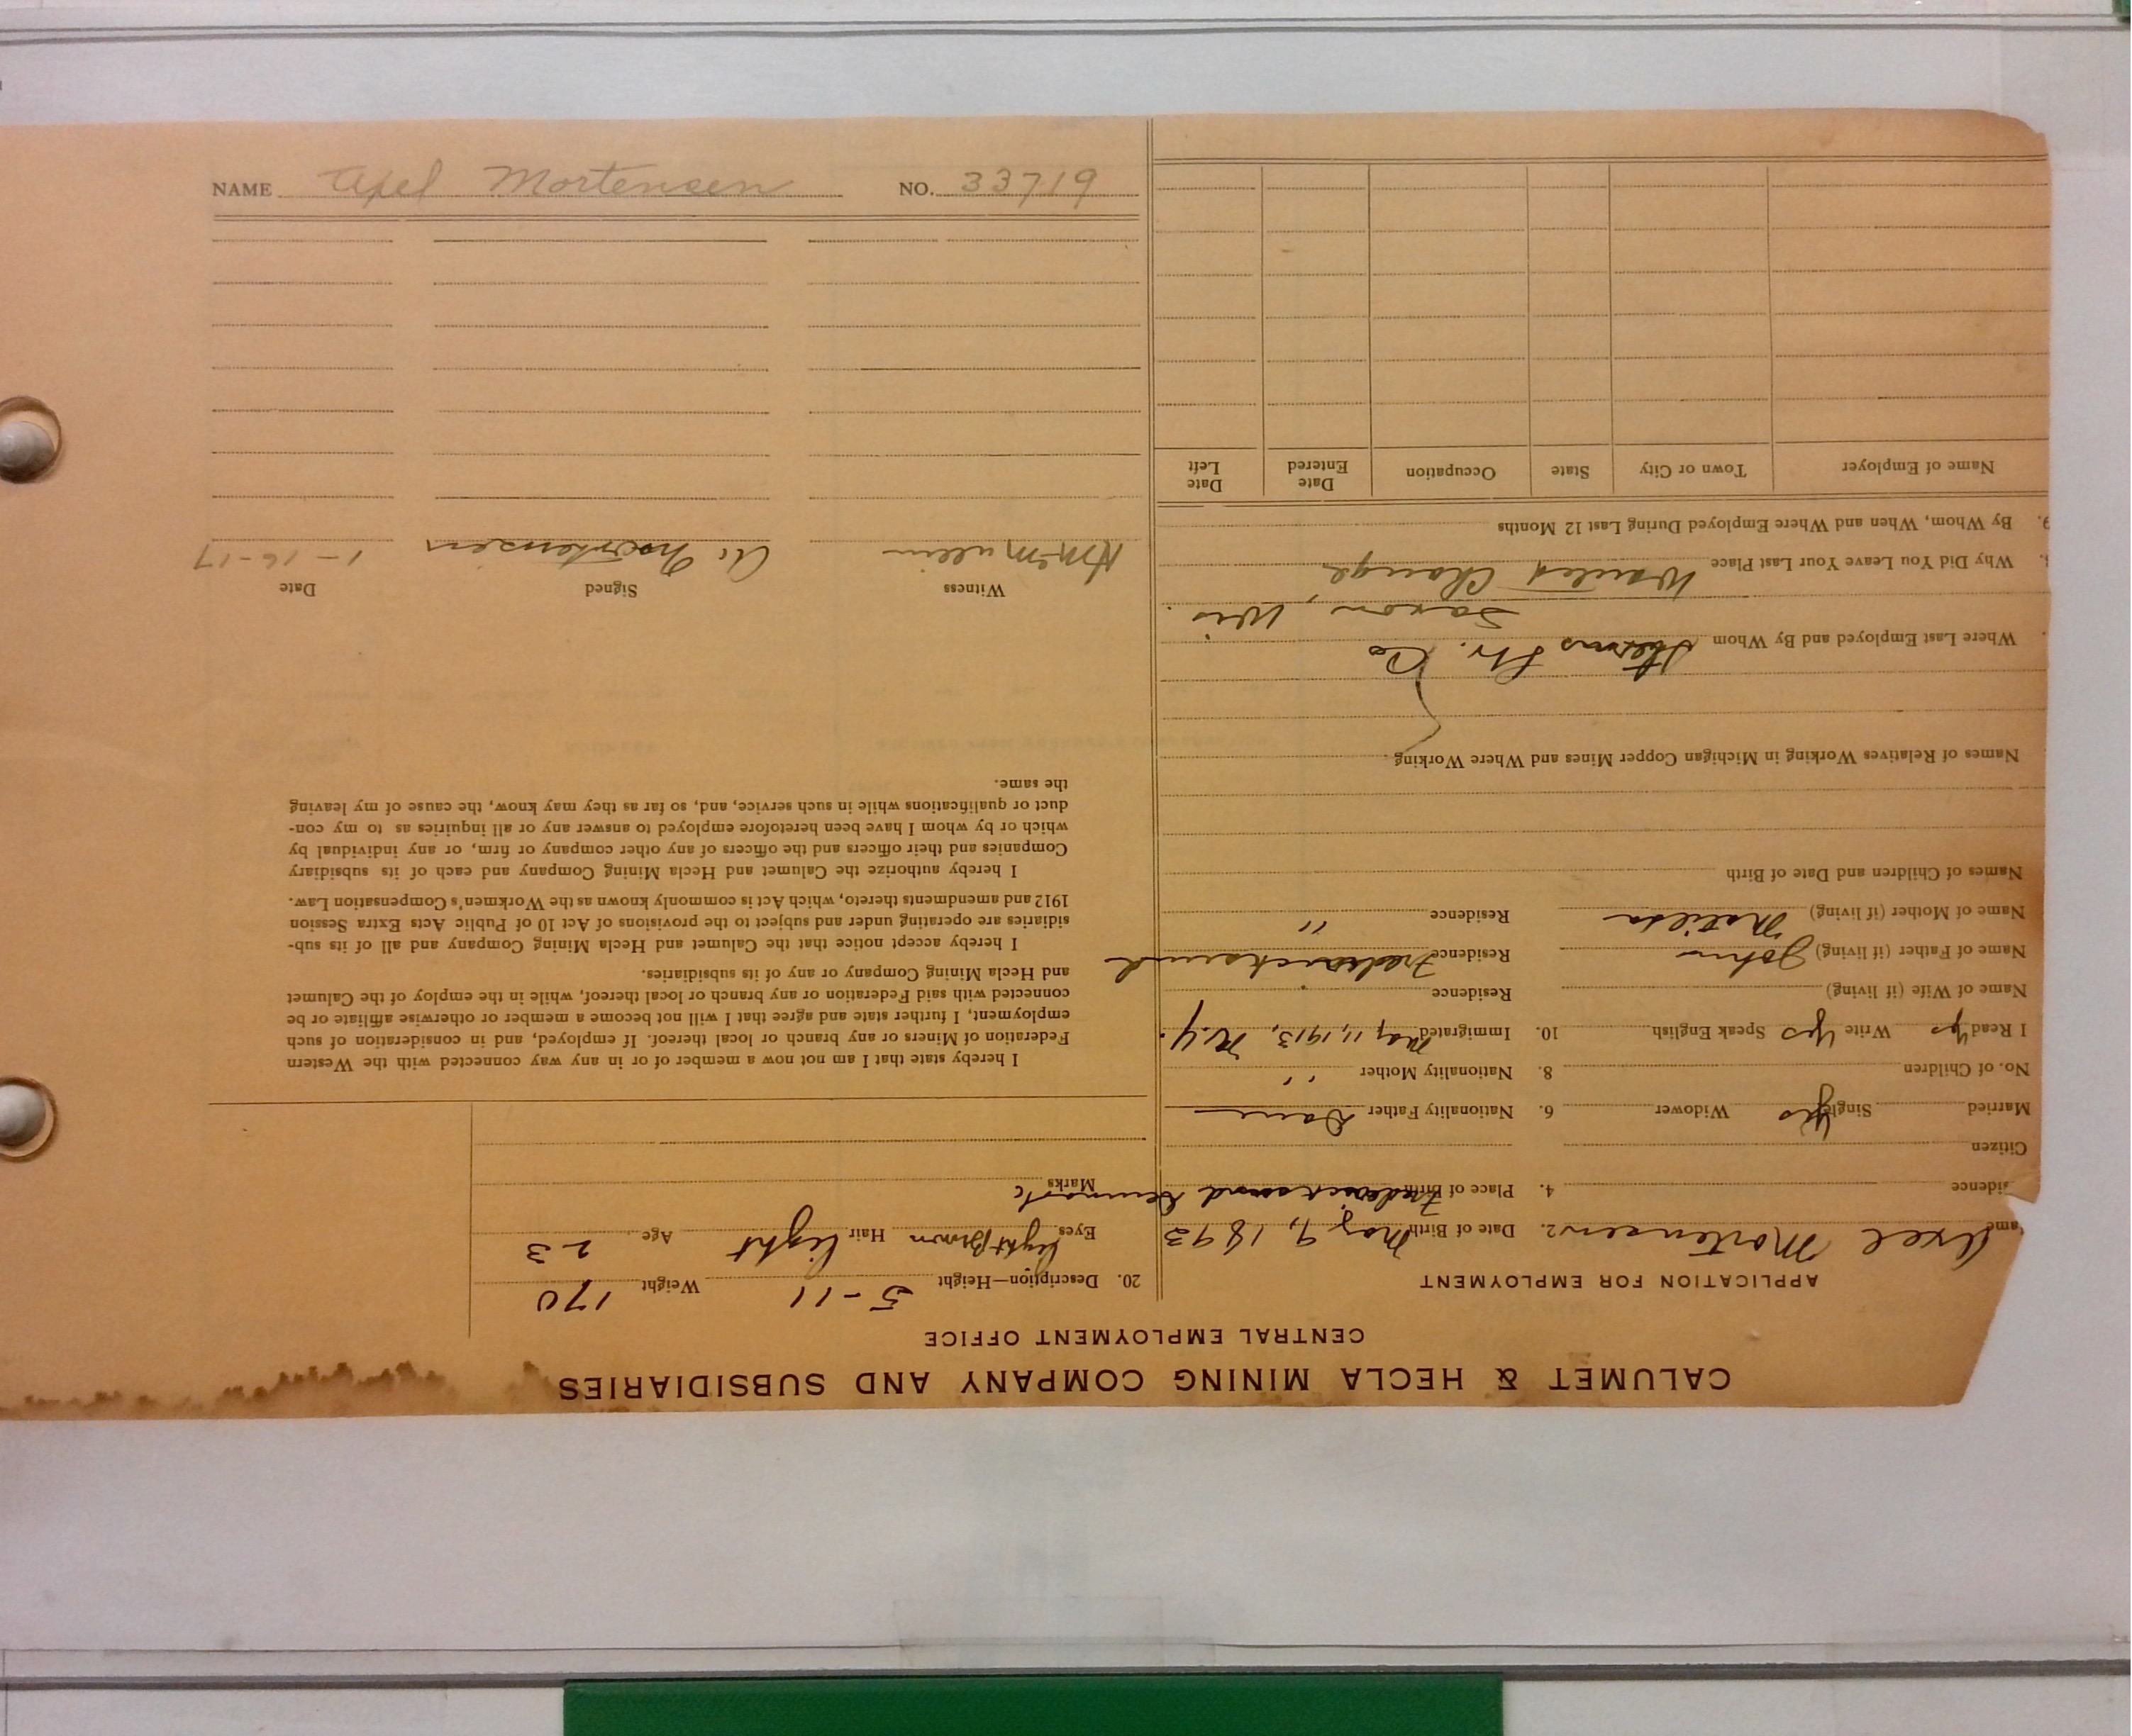 CALUMET & HECLA MINING COMPANY AND SUBSIDIARIES
CENTRAL EMPLOYMENT OFFICE
APPLICATION FOR EMPLOYMENT
ame Axel Mortensen 2. Date of Birth May 9, 1893
idence 4. Place of Birth Denmark
Citizen
Married Single Yes Widower 6. Nationality Father Dane
No. of Children 8. Nationality Mother "
I Read Yes Write Yes Speak English 10. Immigrated May 11, 1913, N.Y.
Name of Wife (if living) Residence
Name of Father (if living) John Residence
Name of Mother (if living) Matilda Residence "
Names of Children and Date of Birth
Names of Relatives Working in Michigan Copper Mines and Where Working
Where Last Employed and By Whom Sterns Lbr. Co
Saxon, Wis.
Why Did You Leave Your Last Place Wanted Change
9. By Whom, When and Where Employed During Last 12 Months
Name of Employer Town or City State Occupation Date Entered Date Left
20. Description—Height 5-11 Weight 170
Eyes light Brown Hair light Age 23
Marks
I hereby state that I am not now a member of or in any way connected with the Western
Federation of Miners or any branch or local thereof. If employed, and in consideration of such
employment, I further state and agree that I will not become a member or otherwise affiliate or be
connected with said Federation or any branch or local thereof, while in the employ of the Calumet
and Hecla Mining Company or any of its subsidiaries.
I hereby accept notice that the Calumet and Hecla Mining Company and all of its sub-
sidiaries are operating under and subject to the provisions of Act 10 of Public Acts Extra Session
1912 and amendments thereto, which Act is commonly known as the Workmen's Compensation Law.
I hereby authorize the Calumet and Hecla Mining Company and each of its subsidiary
Companies and their officers and the officers of any other company or firm, or any individual by
which or by whom I have been heretofore employed to answer any or all inquiries as to my con-
duct or qualifications while in such service, and, so far as they may know, the cause of my leaving
the same.
Witness Signed Date
Mortensen 1-16-17
NAME Axel Mortensen NO. 33719